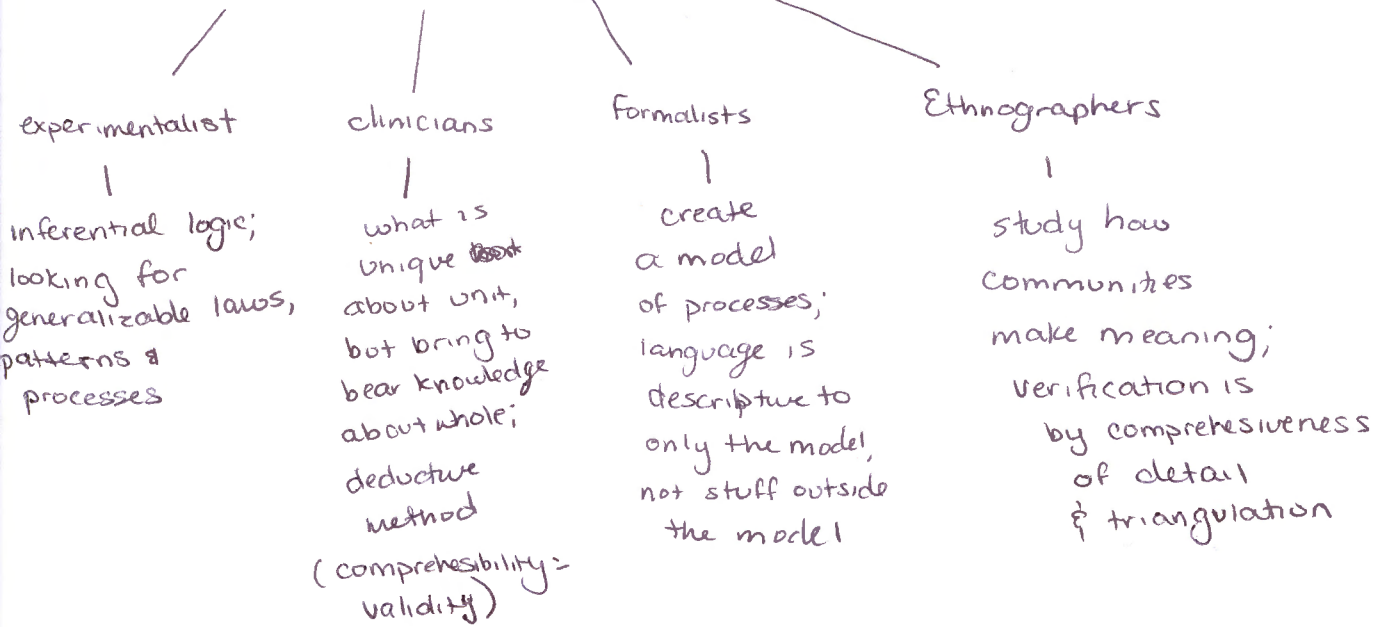 experimentalist
inferential logic;
looking for
generalizable laws,
patterns &
processes
clinicians
what is
unique
about unit,
but bring to
bear knowledge
about whole;
deductive
method
(comprehesibility =
validity)
Formalists
create
a model
of processes;
language is
descriptive to
only the model,
not stuff outside
the model
Ethnographers
study how
communities
make meaning;
verification is
by comprehesiveness
of detail
& triangulation